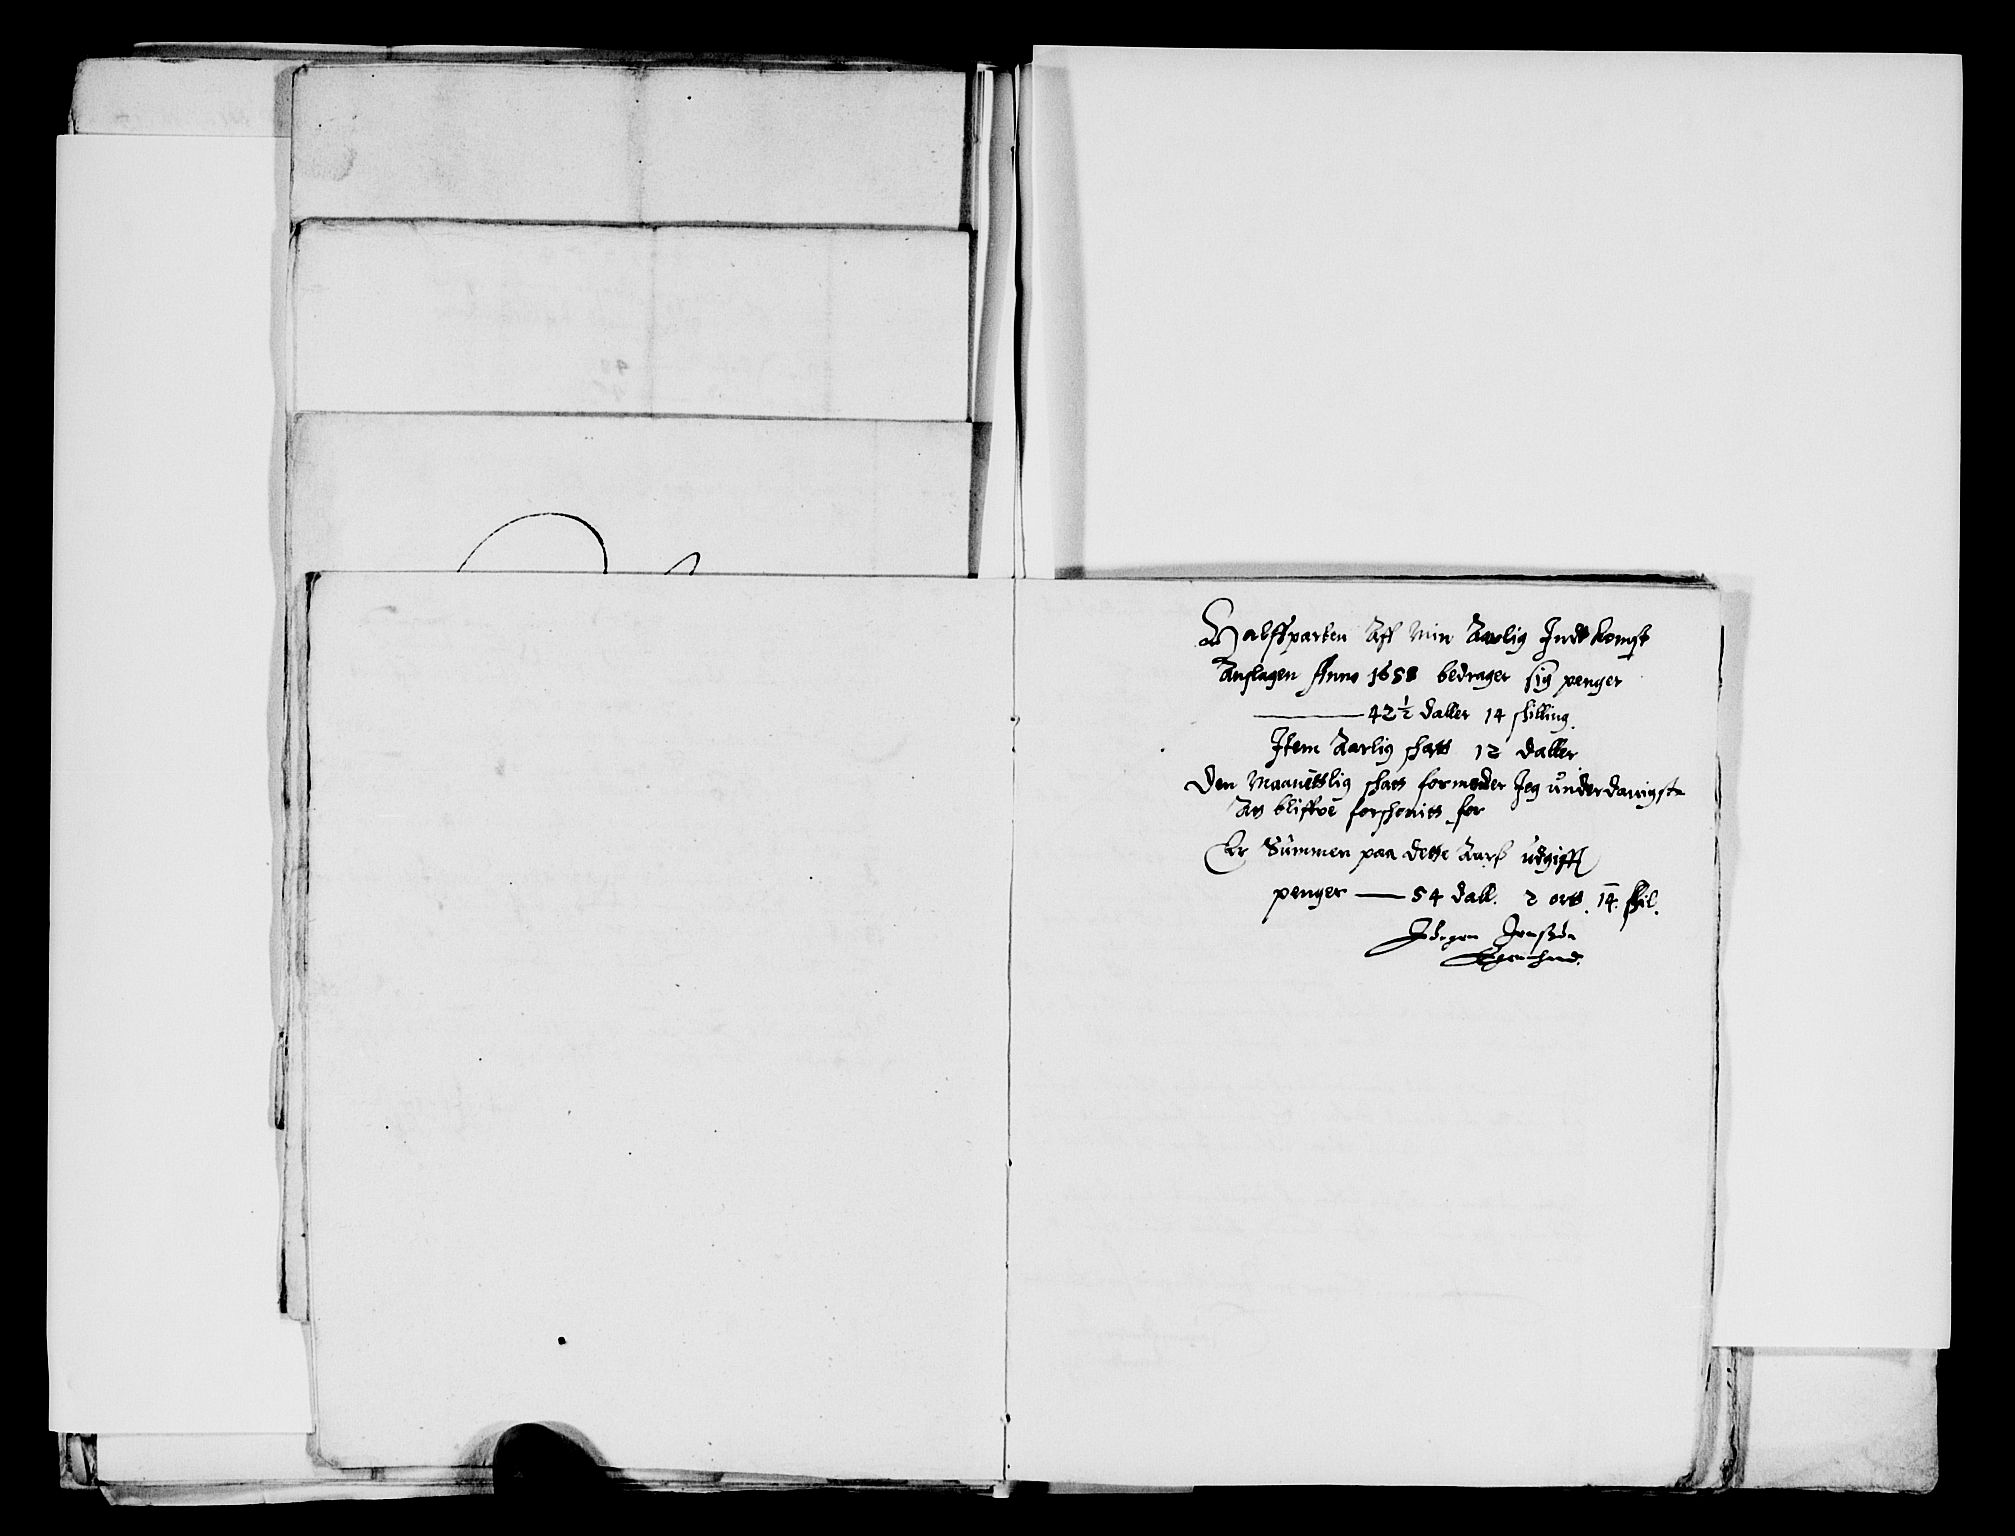 Halffparten Aff Min Aarlig Indkomst
Anslagen Anno 1658 bedrager sig penger
42 1/2 daller 14 skilling.
Item Aarlig skatt 12 daller
Den Maanettlig skatt formoder Jeg underdanigste
At bliffue forskonitt for
Er Summen paa dette Aars udgifft
penger 54 dall. 2 ortt. 14. skil.